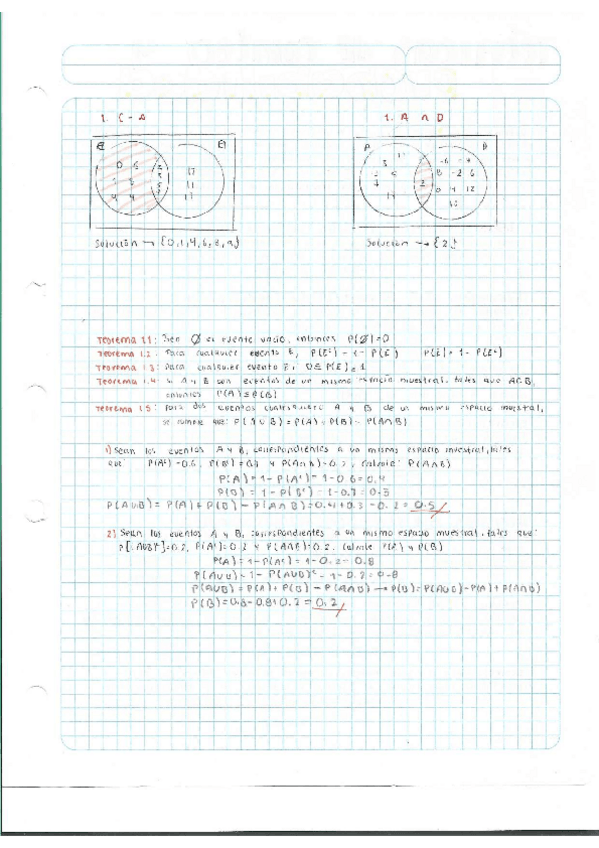 1. C - A
1. A ∩ D
Solución → {0,1,4,6,8,9}
Solución → {2}
Teorema 1.1: Sien ∅ es evento vacio, entonces P(∅)=0
Teorema 1.2: Para cualquier evento E, P(E^c) = 1 - P(E) P(E) = 1 - P(E^c)
Teorema 1.3: Para cualquier evento E, 0≤P(E)≤1
Teorema 1.4: Si A y B son eventos de un mismo espacio muestral, tales que A⊂B,
entonces P(A)≤P(B)
Teorema 1.5: Para dos eventos cualesquiera A y B de un mismo espacio muestral,
se cumple que: P(A∪B)=P(A)+P(B)-P(A∩B)
1) Sean los eventos A y B, correspondientes a un mismo espacio muestral, tales
que: P(A^c)=0.6, y P(A∩B)=0.2, calcule:
P(A)=1-P(A^c)=1-0.6=0.4
P(B)=1-P(B^c)=1-0.7=0.3
P(A∪B)=P(A)+P(B)-P(A∩B)=0.4+0.3-0.2=0.5
2) Sean los eventos A y B, correspondientes a un mismo espacio muestral, tales que:
P[(A∪B)^c]=0.2, y P(A∩B)=0.2. Calcule y P(B)
P(A)=1-P(A^c)=1-0.2=0.8
P(A∪B)=1-P(A∪B)^c=1-0.2=0.8
P(A∪B)=P(A)+P(B)-P(A∩B) → P(B)=P(A∪B)-P(A)+P(A∩B)
P(B)=0.8-0.8+0.2=0.2